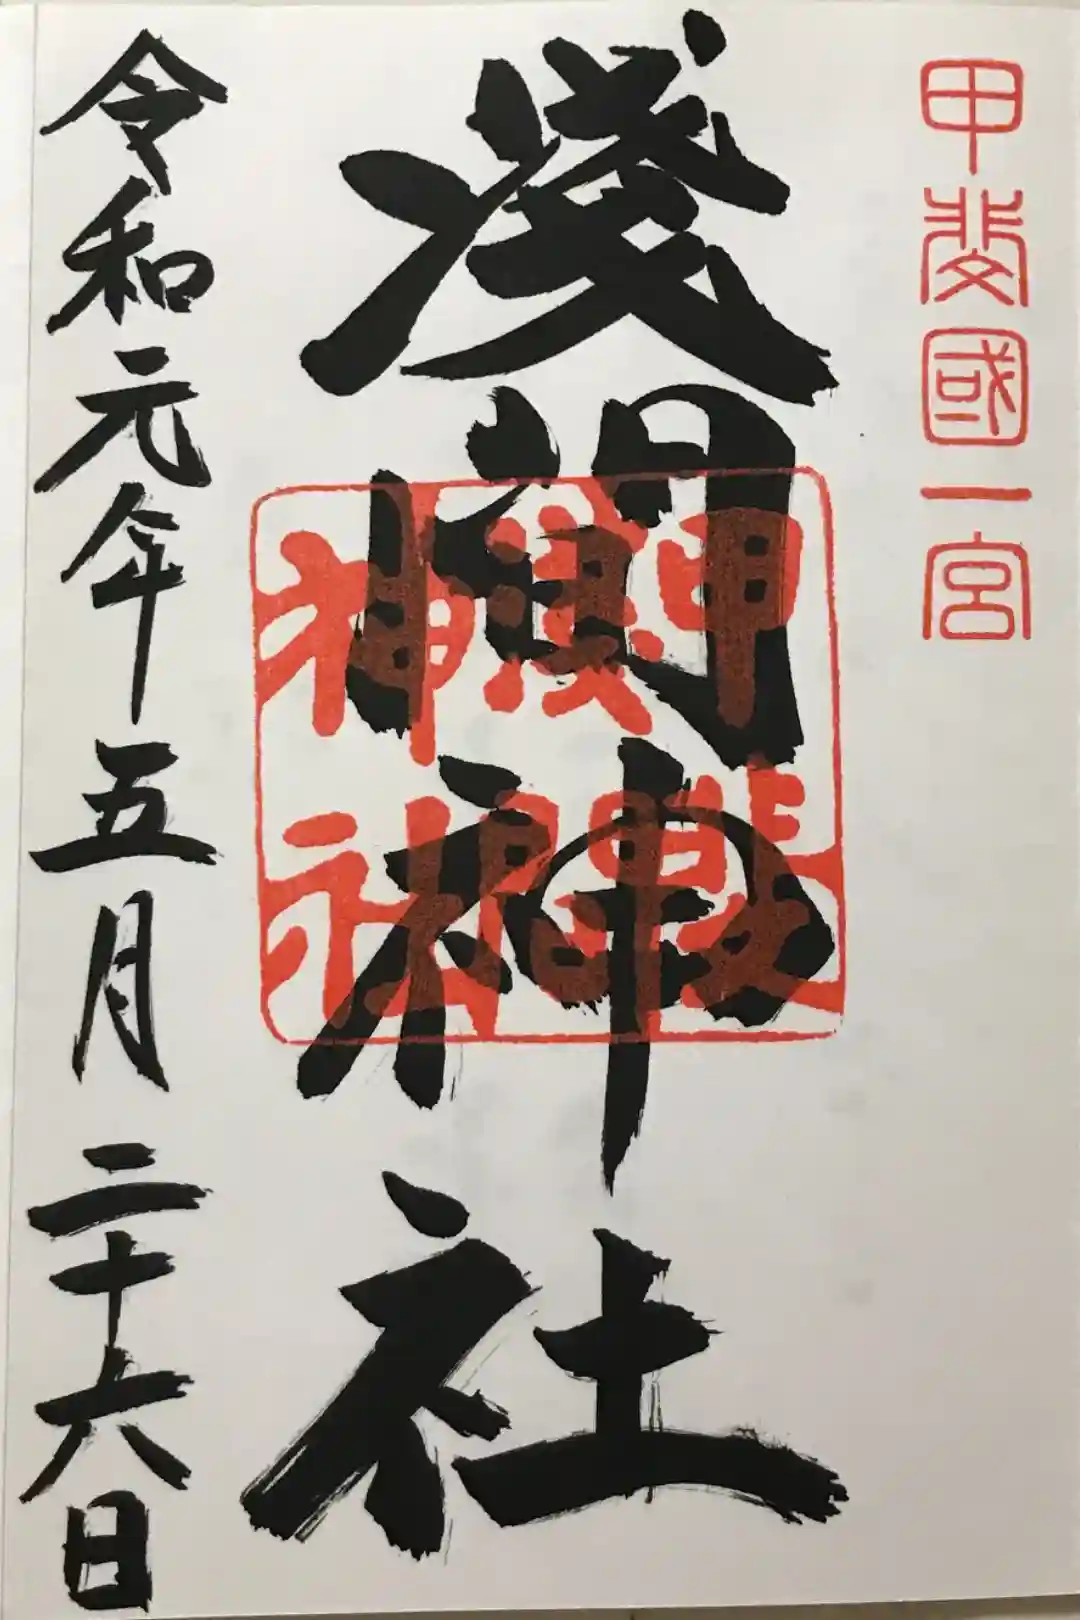 甲斐國一宮
淺間神社
甲斐
淺間
神社
令和元年五月二十六日